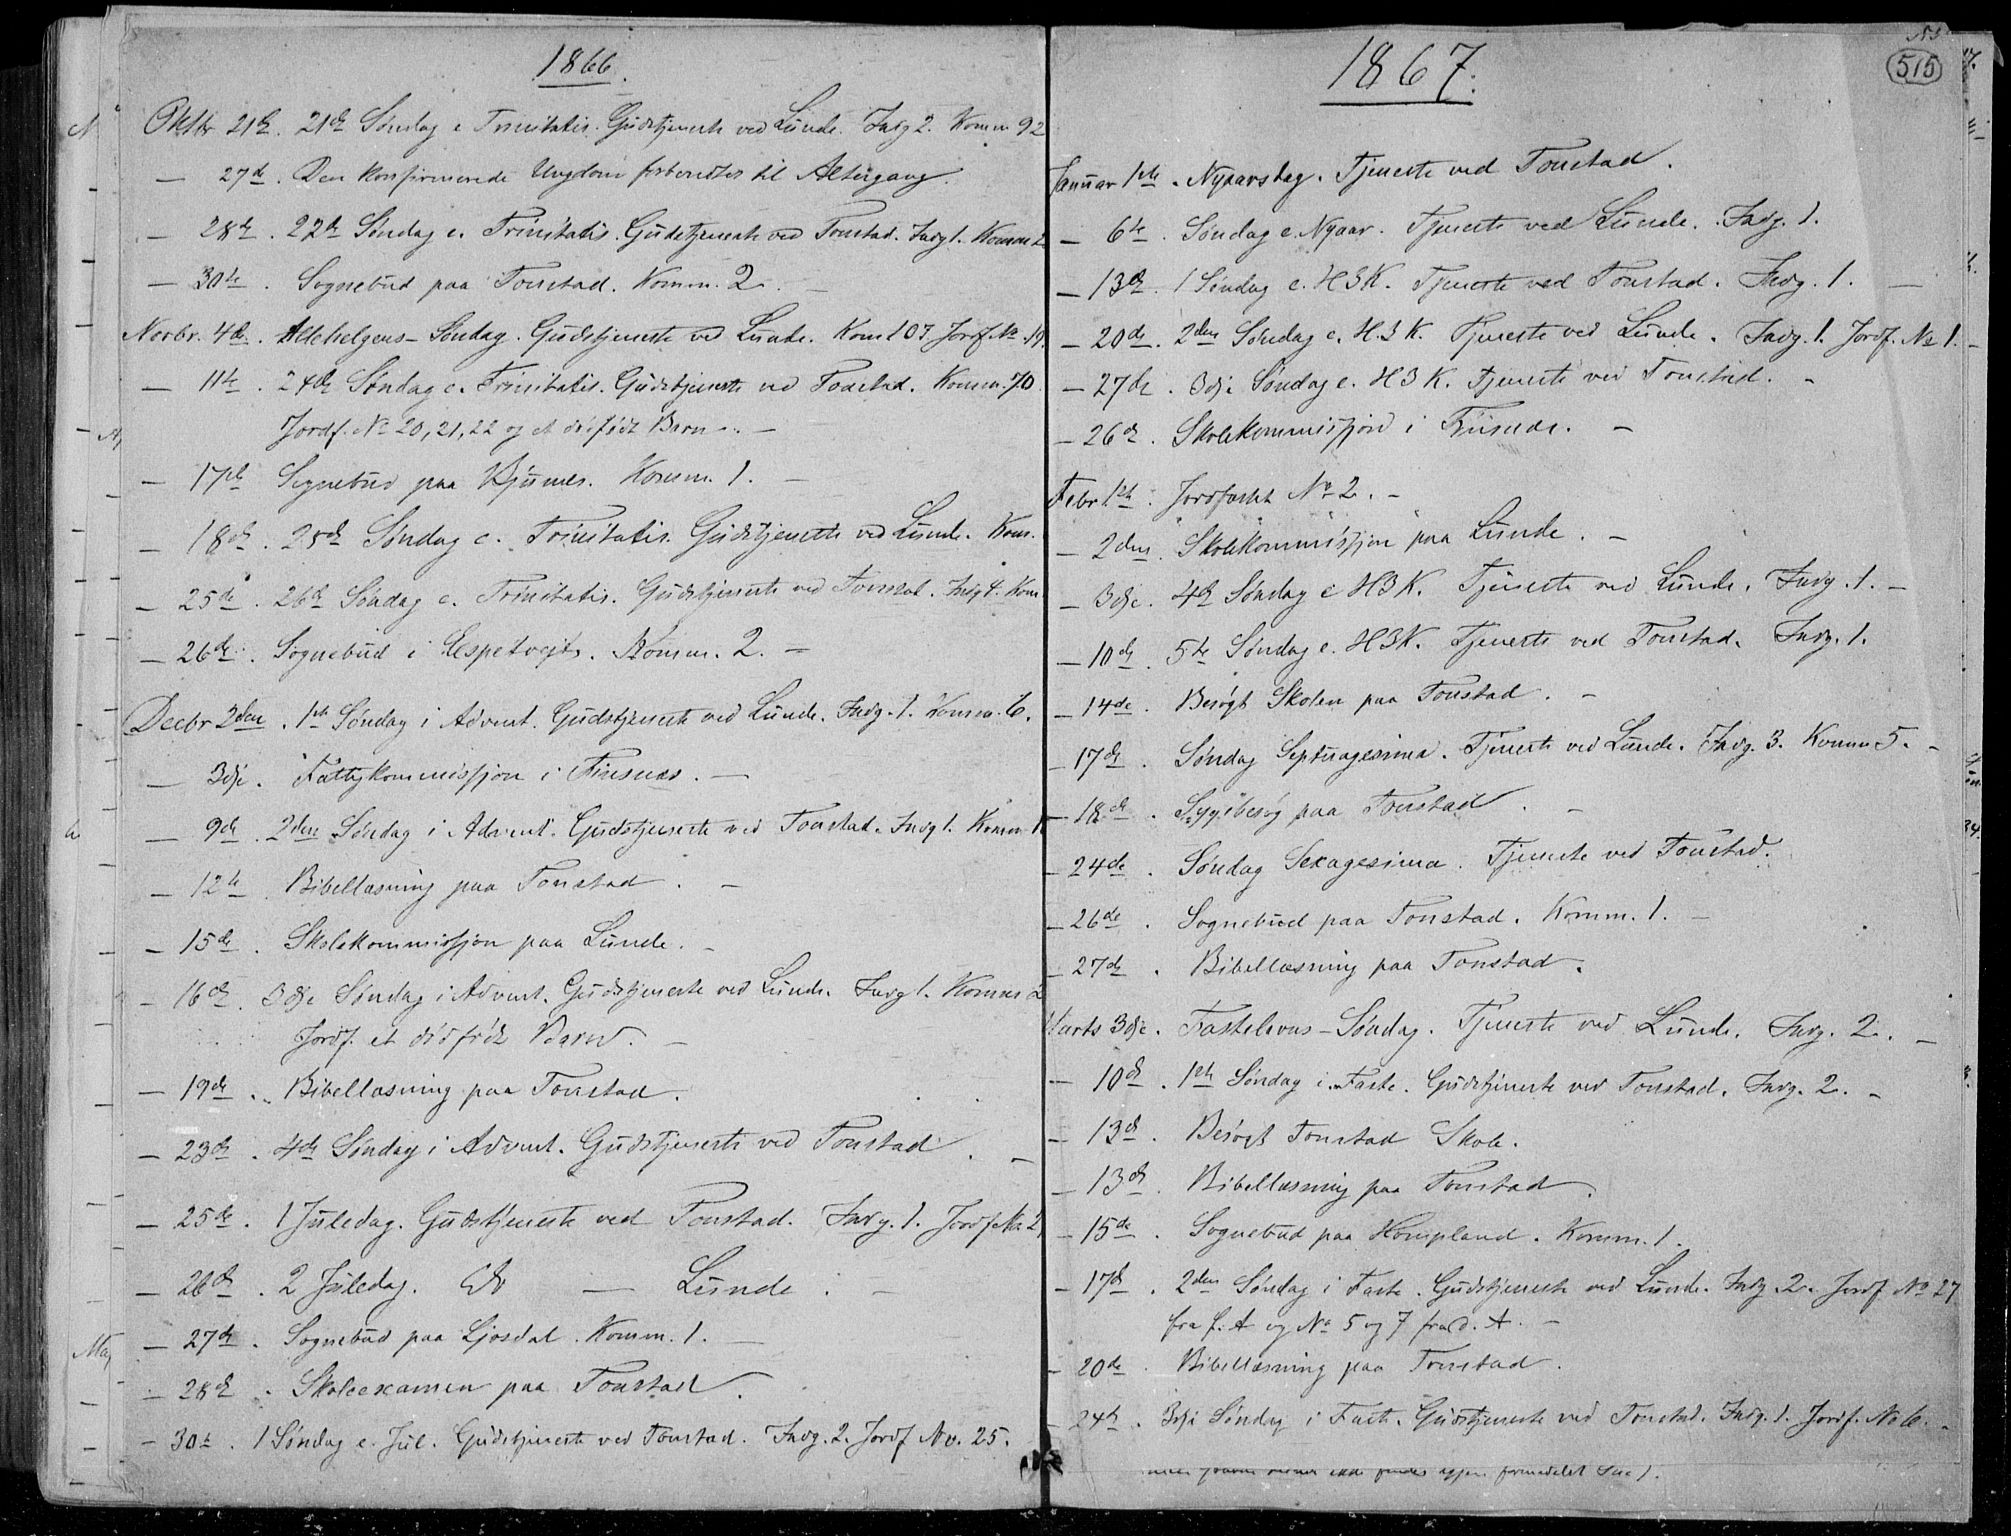 1866.
Oktbr 21de. 21de Søndag e. Trinitatis. Gudstjeneste ved Lunde. Indg 2. Komm 92
— 27de. Den konfirmerede Ungdom forberedtes til Altergang.
— 28de. 22de Søndag e. Trinitatis. Gudstjeneste ved Tonstad. Indg 1. Komm
— 30te. Sognebud paa Tonstad. Komm. 2. —
Novbr. 4de. Allehelgens-Søndag. Gudstjeneste ved Lunde. Kom 107 Jordf. No 19.
— 11te. 24de Søndag e. Trinitatis. Gudstjeneste ved Tonstad. Komm. 70
Jordf. No 20, 21, 22 og et dødfødt Barn. —
— 17de Sognebud paa Komm. 1. —
— 18de. 25de Søndag e. Trinitatis. Gudstjeneste ved Lunde. Kom.
— 25de. 26de Søndag e. Trinitatis. Gudstjeneste ved Tonstad. Indg 4. Kom
— 26de. Sognebud i Espetvejt. Komm. 2. —
Decbr 2den. 1ste Søndag i Advent. Gudstjeneste ved Lunde. Indg. 1. Komm. 6.
— 3dje. Fattigkommissjon i Finsnes. —
— 9de. 2den Søndag i Advent. Gudstjeneste ved Tonstad. Indg 1. Komm
— 12te. Bibellæsning paa Tonstad. —
— 15de. Skolekommissjon paa Lunde. —
— 16de. 3dje Søndag i Advent. Gudstjeneste ved Lunde. Indg 1. Komm
Jordf. et dødfødt Barn. —
— 19de. Bibellæsning paa Tonstad.
— 23de. 4de Søndag i Advent. Gudstjeneste ved Tonstad. —
— 25de. 1 Juledag. Gudstjeneste ved Tonstad. Indg. 1. Jordf No 2
— 26de. 2 Juledag. Do — Lunde. —
— 27de. Sognebud paa Ljosdal. Komm. 1. —
— 28de. Skoleexamen paa Tonstad.
— 30te. 1 Søndag e. Jul. Gudstjeneste ved Tonstad. Indg. 2. Jordf No. 25.
1867.
515
Januar 1ste. Nyaarsdag. Tjeneste ved Tonstad.
— 6te. Søndag e. Nyaar. Tjeneste ved Lunde. Indg. 1.
— 13de. 1 Søndag e. H3K. Tjeneste ved Tonstad. Indg. 1. —
— 20de. 2den Søndag e. H.3K. Tjeneste ved Lunde. Indg. 1. Jordf. No 1. —
— 27de. 3dje Søndag e. H3K. Tjeneste ved Tonstad. —
— 26de. Skolekommissjon i Finsnes. —
Febr. 1ste. Jordfæstet No 2. —
— 2den. Skolekommissjon paa Lunde. —
— 3dje. 4de Søndag e H3K. Tjeneste ved Lunde. Indg. 1. —
— 10de. 5te Søndag e. H3K. Tjeneste ved Tonstad. Indg. 1.
— 14de. Besøgt Skolen paa Tonstad. —
— 17de. Søndag Septuagesima. Tjeneste ved Lunde. Indg. 3. Komm 5. —
— 18de. Sygebesøg paa Tonstad. —
— 24de. Søndag Sexagesima. Tjeneste ved Tonstad.
— 26de. Sognebud paa Tonstad. Komm. 1. —
— 27de. Bibellæsning paa Tonstad.
Marts 3dje. Fastelavns-Søndag. Tjeneste ved Lunde. Indg. 2. —
— 10de. 1ste Søndag i Faste. Gudstjeneste ved Tonstad. Indg. 2. —
— 13de. Besøgt Tonstad Skole.
— 13de. Bibellæsning paa Tonstad.
— 15de. Sognebud paa Hompland. Komm. 1.
— 17de. 2den Søndag i Faste. Gudstjeneste ved Lunde. Indg. 2. Jordf No 27
fra f. A og No 5 og 7 fra d. A. —
— 20de. Bibellæsning paa Tonstad.
— 24de. 3dje Søndag i Faste. Gudstjeneste ved Tonstad. Indg. 1. Jordf. No 6. —